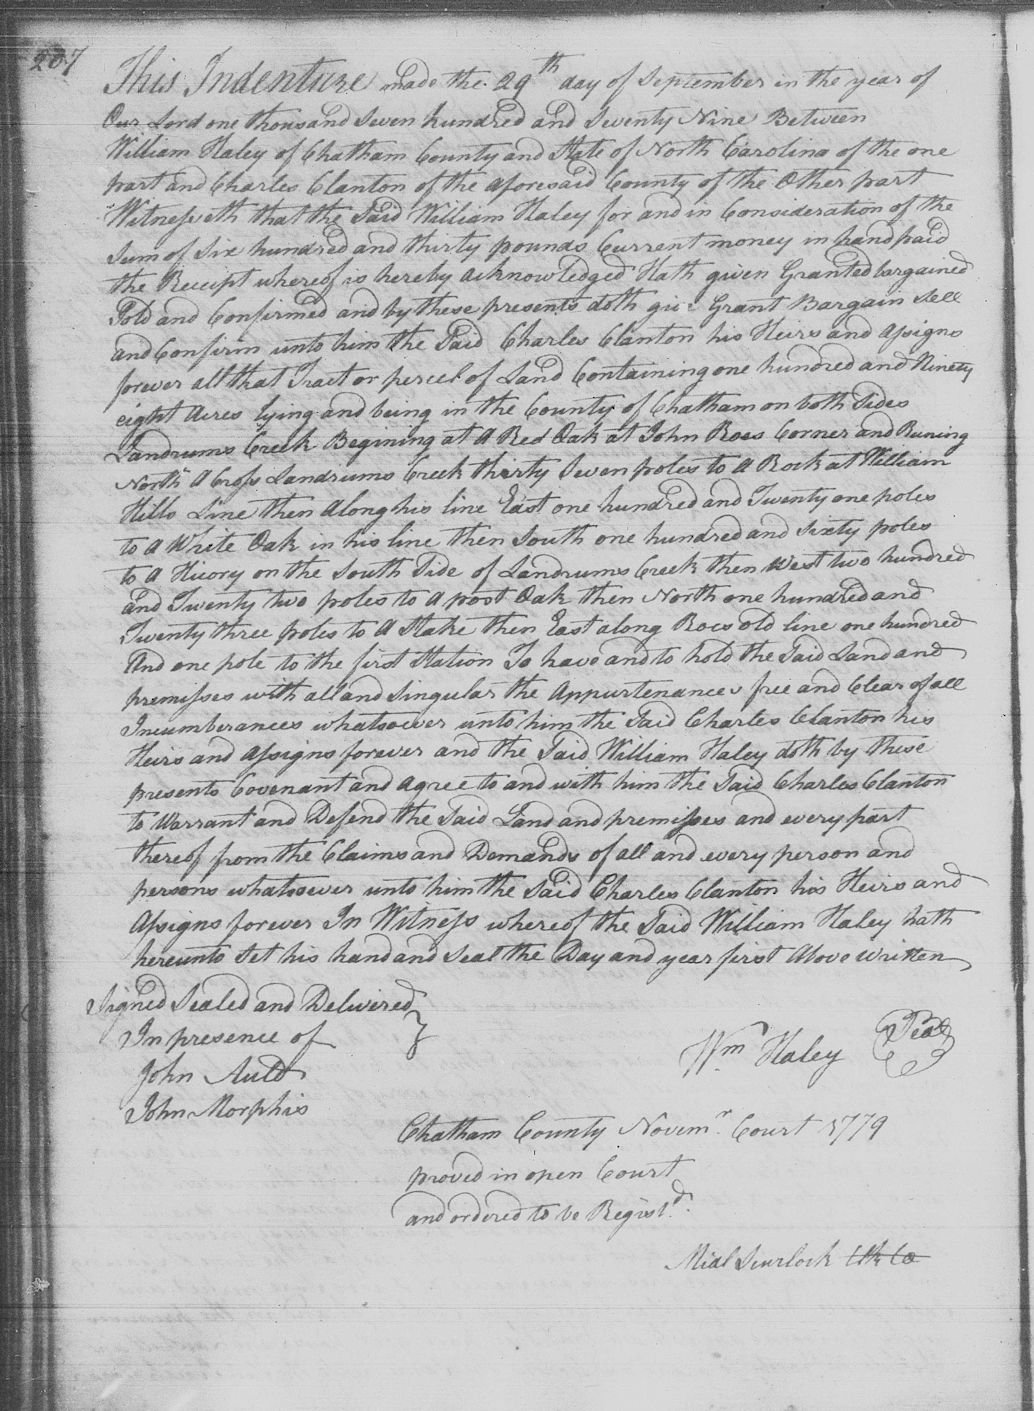 207
This Indenture made the 29th day of September in the year of
Our Lord one thousand Seven hundred and Seventy Nine Between
William Haley of Chatham County and State of North Carolina of the one
part and Charles Clanton of the aforesaid County of the Other part
Witnesseth that the Said William Haley for and in Consideration of the
Sum of Six hundred and thirty pounds Current money in hand paid
the Receipt whereof is hereby acknowledged Hath given Granted bargained
Sold and Confirmed and by these presents doth give Grant Bargain Sell
and Confirm unto him the Said Charles Clanton his Heirs and Assigns
forever all that Tract or percel of Land Containing one hundred and Ninety
eight Acres lying and being in the County of Chatham on both Sides
Landrums Creek Begining at A Red Oak at John Roes Corner and Runing
North A Cross Landrums Creek thirty Seven poles to A Rock at William
Hills Line then Along his line East one hundred and Twenty one poles
to A White Oak in his line then South one hundred and sixty poles
to A Hicory on the South Side of Landrums Creek then West two hundred
and Twenty two poles to A post Oak then North one hundred and
Twenty three poles to A Stake then East along Roes old line one hundred
And one pole to the first Station To have and to hold the Said Land and
premisses with all and Singular the Appurtenances free and Clear of all
Incumberances whatsoever unto him the Said Charles Clanton his
Heirs and Assigns forever and the Said William Haley doth by these
presents Covenant and agree to and with him the Said Charles Clanton
to Warrant and Defend the Said Land and premisses and every part
thereof from the Claims and Demands of all and every person and
persons whatsoever unto him the Said Charles Clanton his Heirs and
Assigns forever In Witness whereof the Said William Haley hath
hereunto Set his hand and Seal the Day and year first Above written
Signed Sealed and Delivered
In presence of
Wm Haley Seal
John Auld
John Morphis
Chatham County Novemr. Court 1779
proved in open Court
and ordered to be Registd.
Mial Scurlock Clk Co